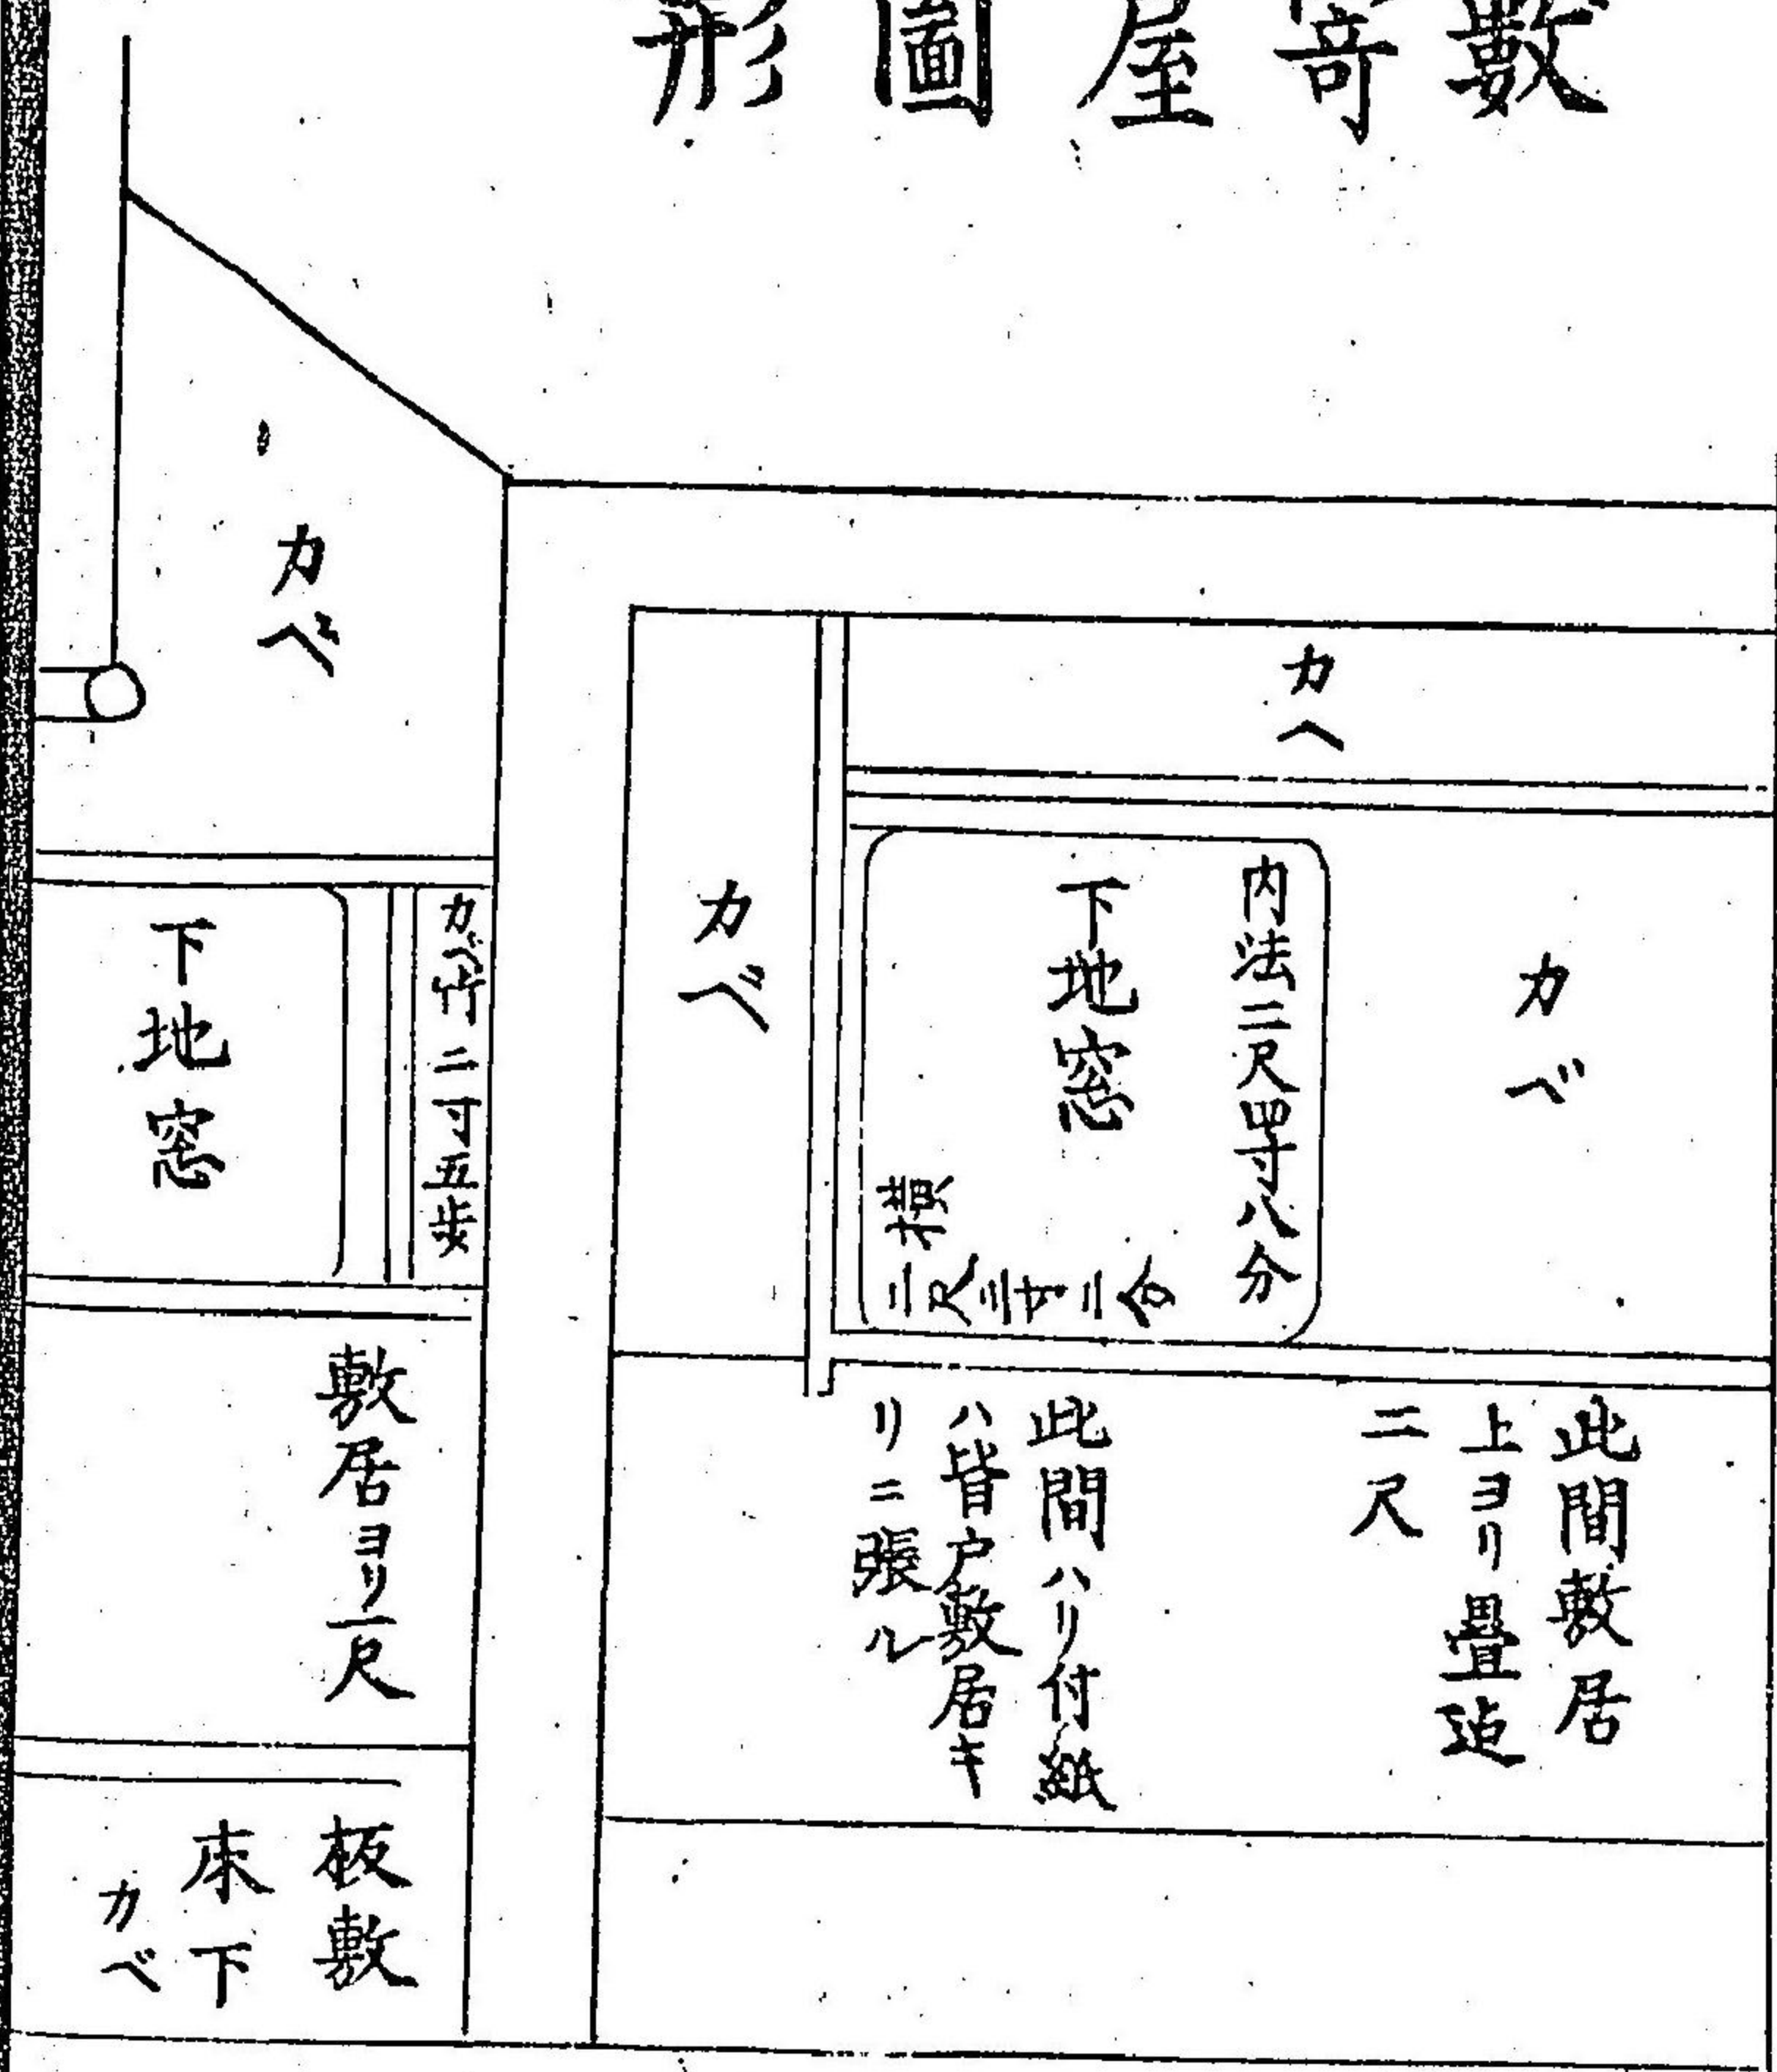 數寄屋圖形
カベ
カヘ
カベ
内法二尺四寸八分
下地窓
横
二尺三寸二分
カベ
此間敷居
上ヨリ疊迠
二尺
此間ハリ付紙
ハ皆戸敷居キ
リニ張ル
カベ
カベ竹二寸五歩
下地窓
敷居ヨリ一尺
板敷
床下
カベ